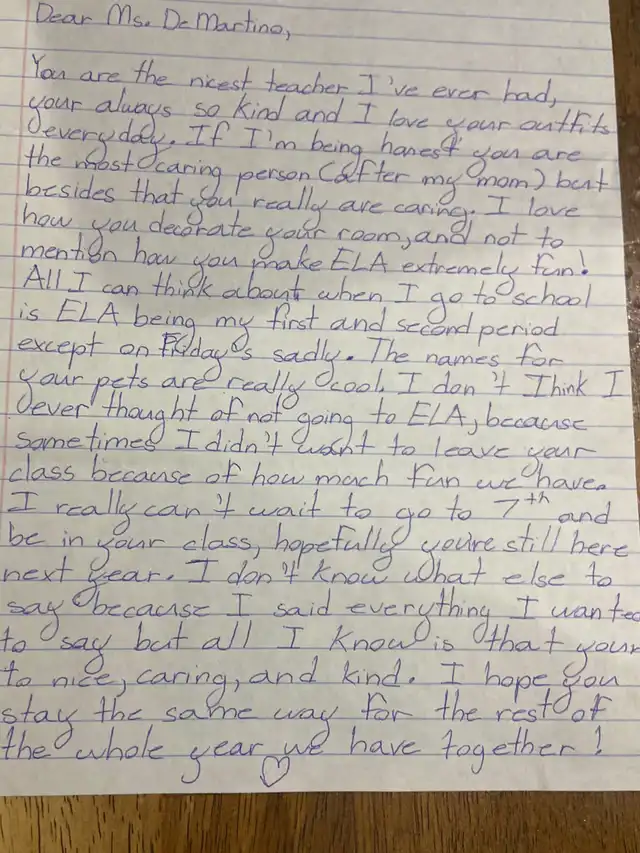 Dear Ms. DeMartino,
You are the nicest teacher I've ever had,
your always so kind and I love your outfits
everyday. If I'm being honest you are
the most caring person (after my mom) but
besides that you really are caring. I love
how you decorate your room, and not to
mention how you make ELA extremely fun!
All I can think about when I go to school
is ELA being my first and second period
except on Friday's sadly. The names for
your pets are really cool. I don't think I
ever thought of not going to ELA, because
sometimes I didn't want to leave your
class because of how much fun we have.
I really can't wait to go to 7th and
be in your class, hopefully you're still here
next year. I don't know what else to
say because I said everything I wanted
to say but all I know is that your
to nice, caring, and kind. I hope you
stay the same way for the rest of
the whole year we have together!